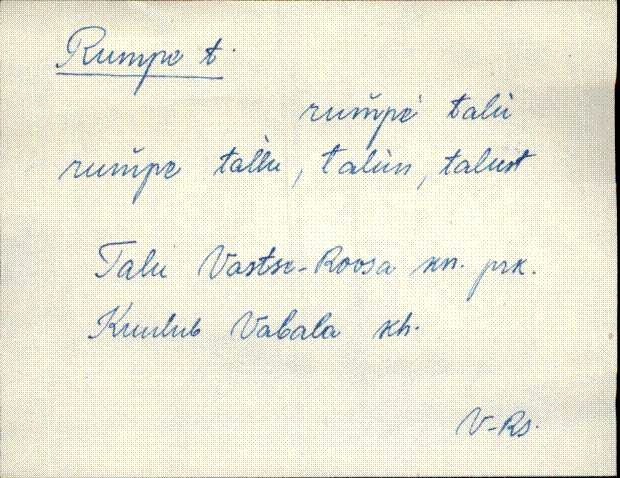 Rumpe t.
rum̆pè talù
rum̆pe tallu, talun, talust
Talu Vastse-Roosa kn. prk.
Kuulub Vabala kh.
V-Rs.